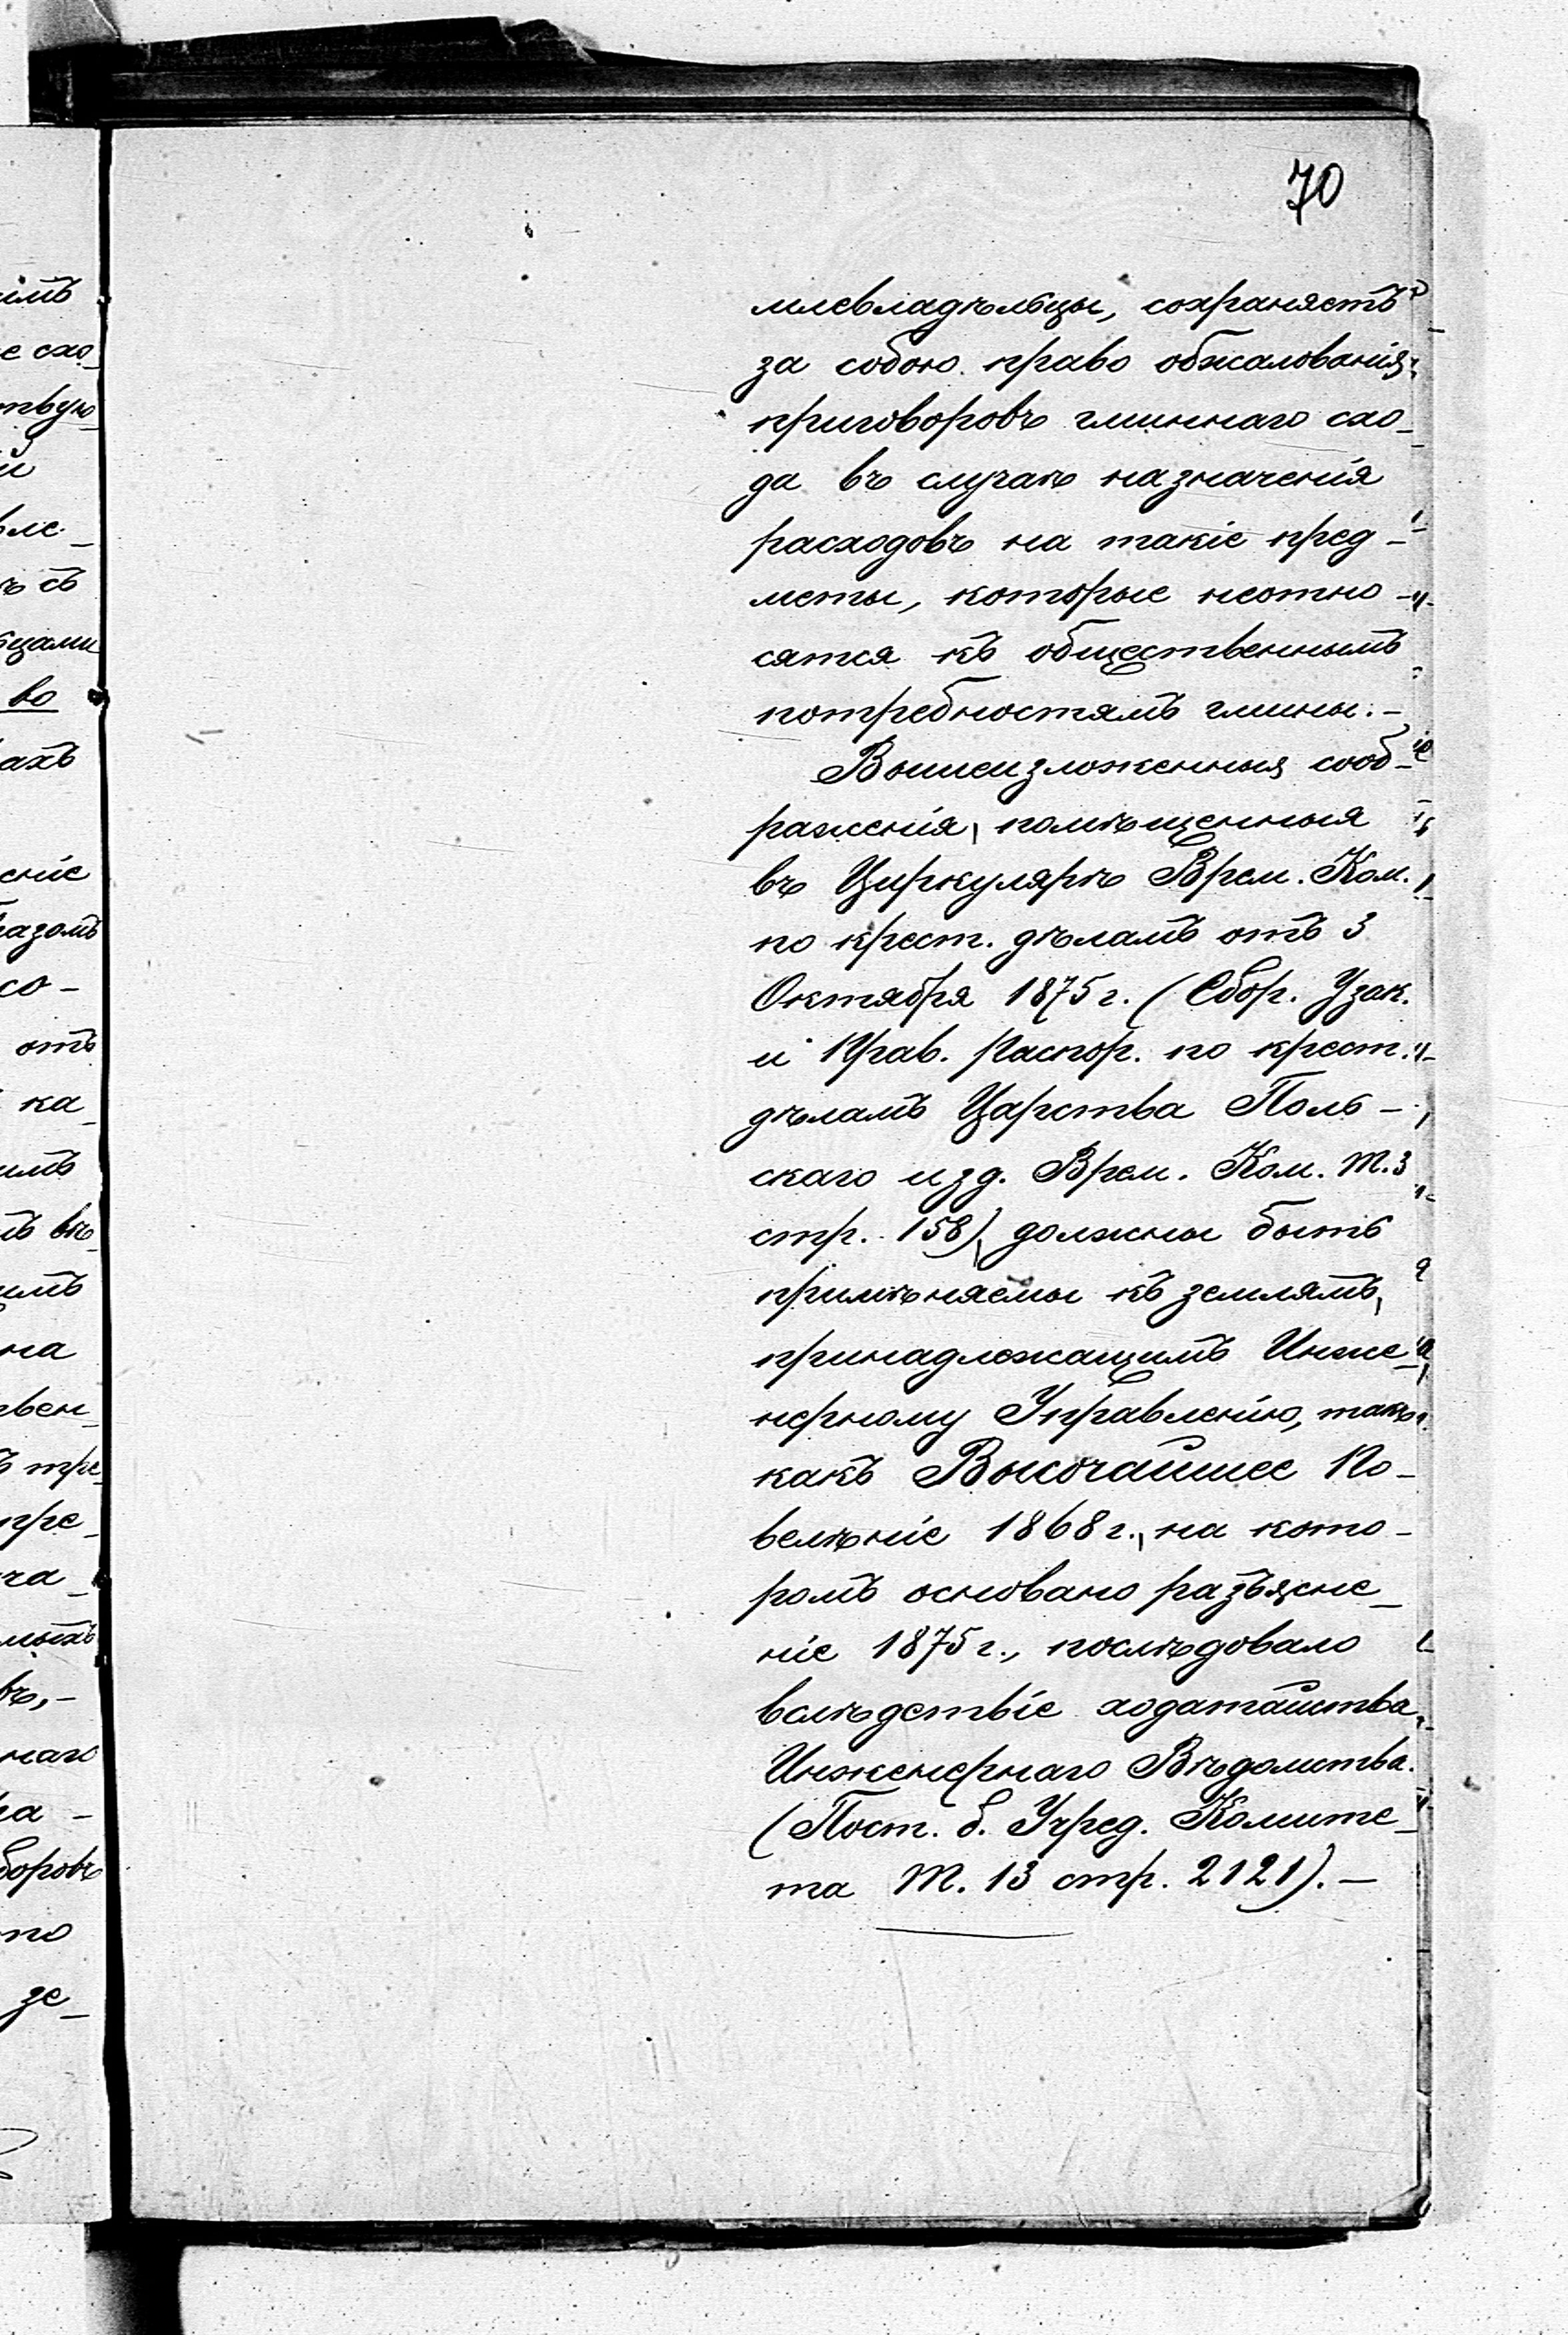 70
млевладѣльцы, сохраняетъ
за собою право обжалованія
приговоровъ гминнаго схо_
да въ случаѣ назначенія
расходовъ на такіе пред-
меты, которые неотно-
сятся къ общественнымъ
потребностямъ гмины.-
Вышеизложенныя сооб-
раженія, помѣщенныя
въ Циркулярѣ Врем. Ком.
по крест. дѣламъ отъ 3
Октября 1875 г. (Сбор. Узак.
и Прав. Распор. по крест.
дѣламъ Царства Поль-
скаго изд. Врем. Ком. Т. 3
стр. 158), должны быть
примѣняемы къ землямъ,
принадлежащимъ Инже_
нерному Управленію, такъ
какъ Высочайшее По-
велѣніе 1868 г., на кото-
ромъ основано разъясне_
ніе 1875 г., послѣдовало
вслѣдствіе ходатайства
Инженернаго Вѣдомства.
(Пост. б. Учред. Комите_
та Т. 13 стр. 2121).-
імъ
е схо_
твую_
й
вле_
ъ съ
ьцами
во
ахъ
еніе
разомъ
со-
отъ
ка_
имъ
вѣ_
имъ
на
вен_
тре_
пре_
ча_
мыхъ
въ,-
наго
ра-
боровъ
по
зе_